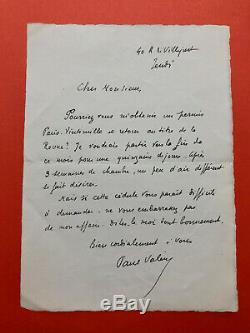 40 R de Villejust
Jeudi
Cher Monsieur,
Pourriez vous m'obtenir un permis
Paris. Vintimille et retour au titre de la
Revue? Je voudrais partir vers la fin de
ce mois pour une quinzaine de jours. Après
3 semaines de chambre, un peu d'air différent
se fait désirer.
Mais si cette cédule vous paraît difficile
à demander, ne vous embarrassez pas
de mon affaire. Dites le moi tout bonnement.
Bien cordialement à vous
Paul Valéry